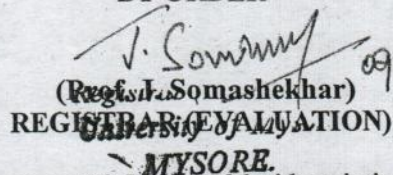 J. Som
09
(Prof. J. Somashekhar)
Registrar
REGISTRAR (EVALUATION)
University of Mys
MYSORE.